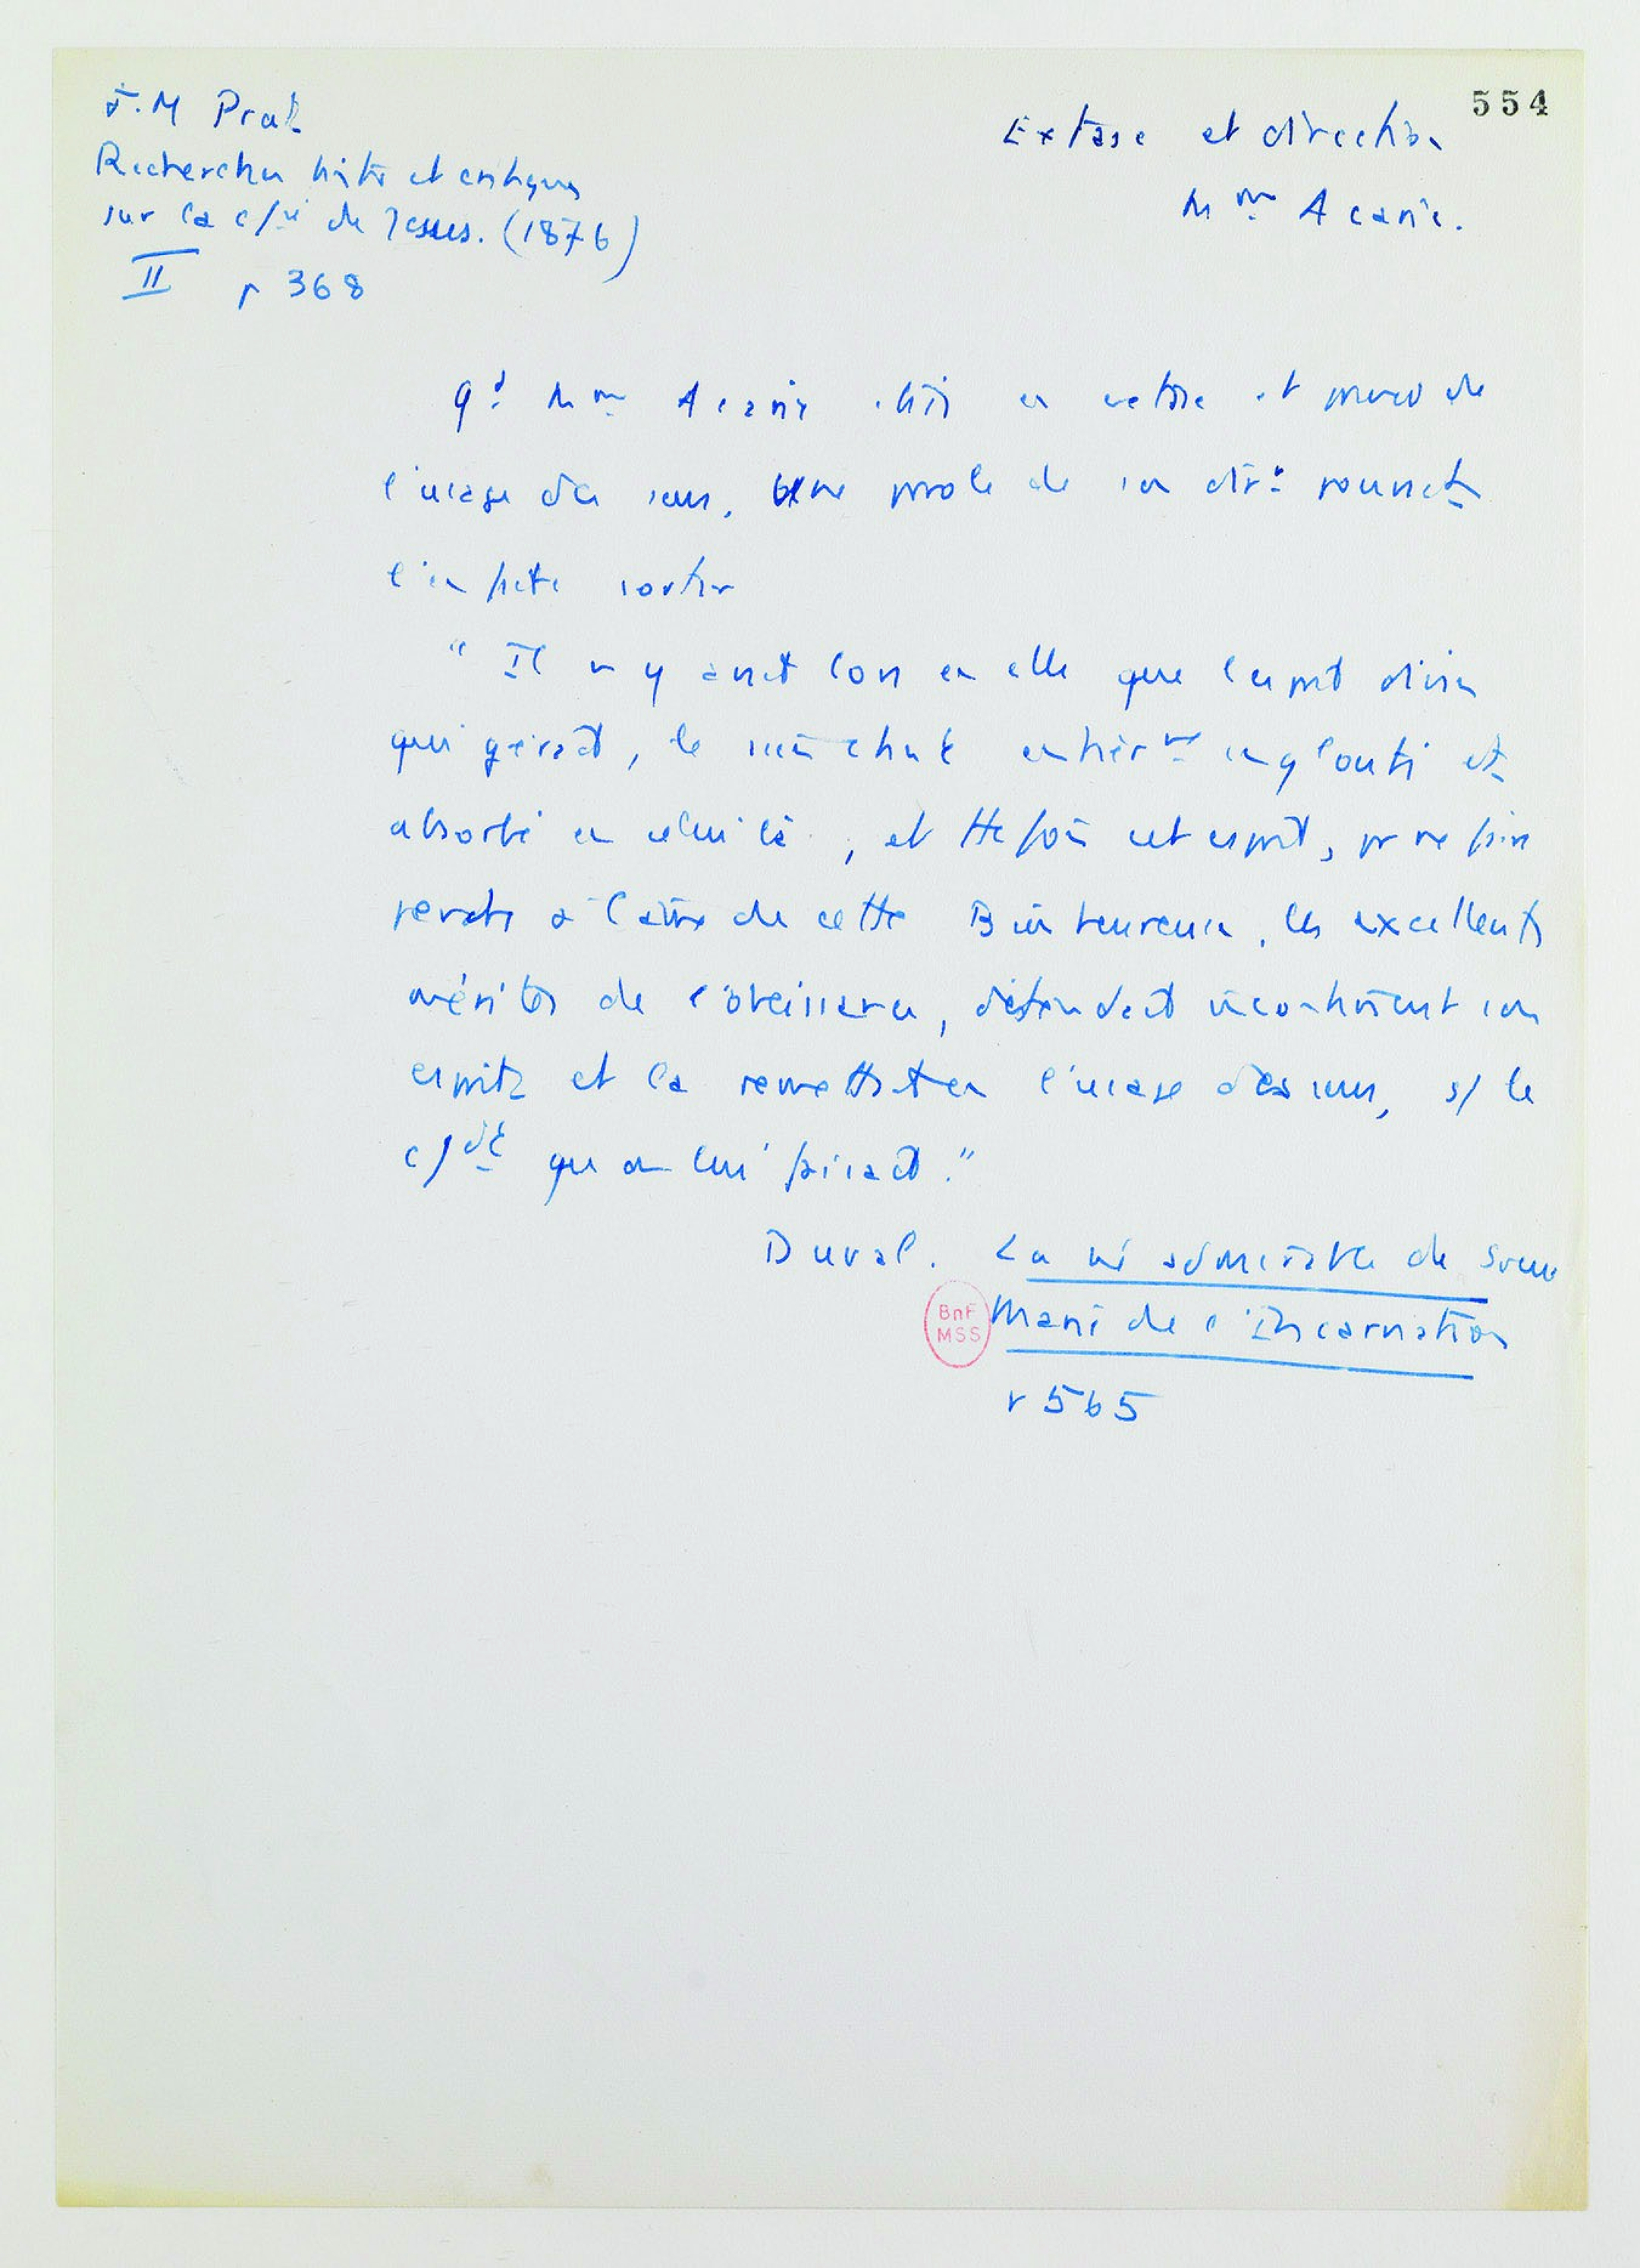 554
J.M Prat
Recherches histor et critiques
sur la c/ie de Jesus. (1876)
II p 368
Extase et direction
Mme Acarie.
Qd Mme Acarie était en extase et privée de
l'usage des sens, une parole de son dirr pouvait
l'en faire sortir
" Il n y avait lors en elle que l'esprit divin
qui gérait, le sien étant entièrmt englouti et
absorbé en celui là, et ttefois cet esprit, pr ne pas
à l'âme de cette Bienheureuse, les excellents
mérites de l'obeissance, détendait incontinent son
esprit et la remettait en l'usage des sens, s/ le
c/dt que on lui faisait."
Duval. La vie admirable de Soeur
BnF
MSS
Marie de l'Incarnation
p 565